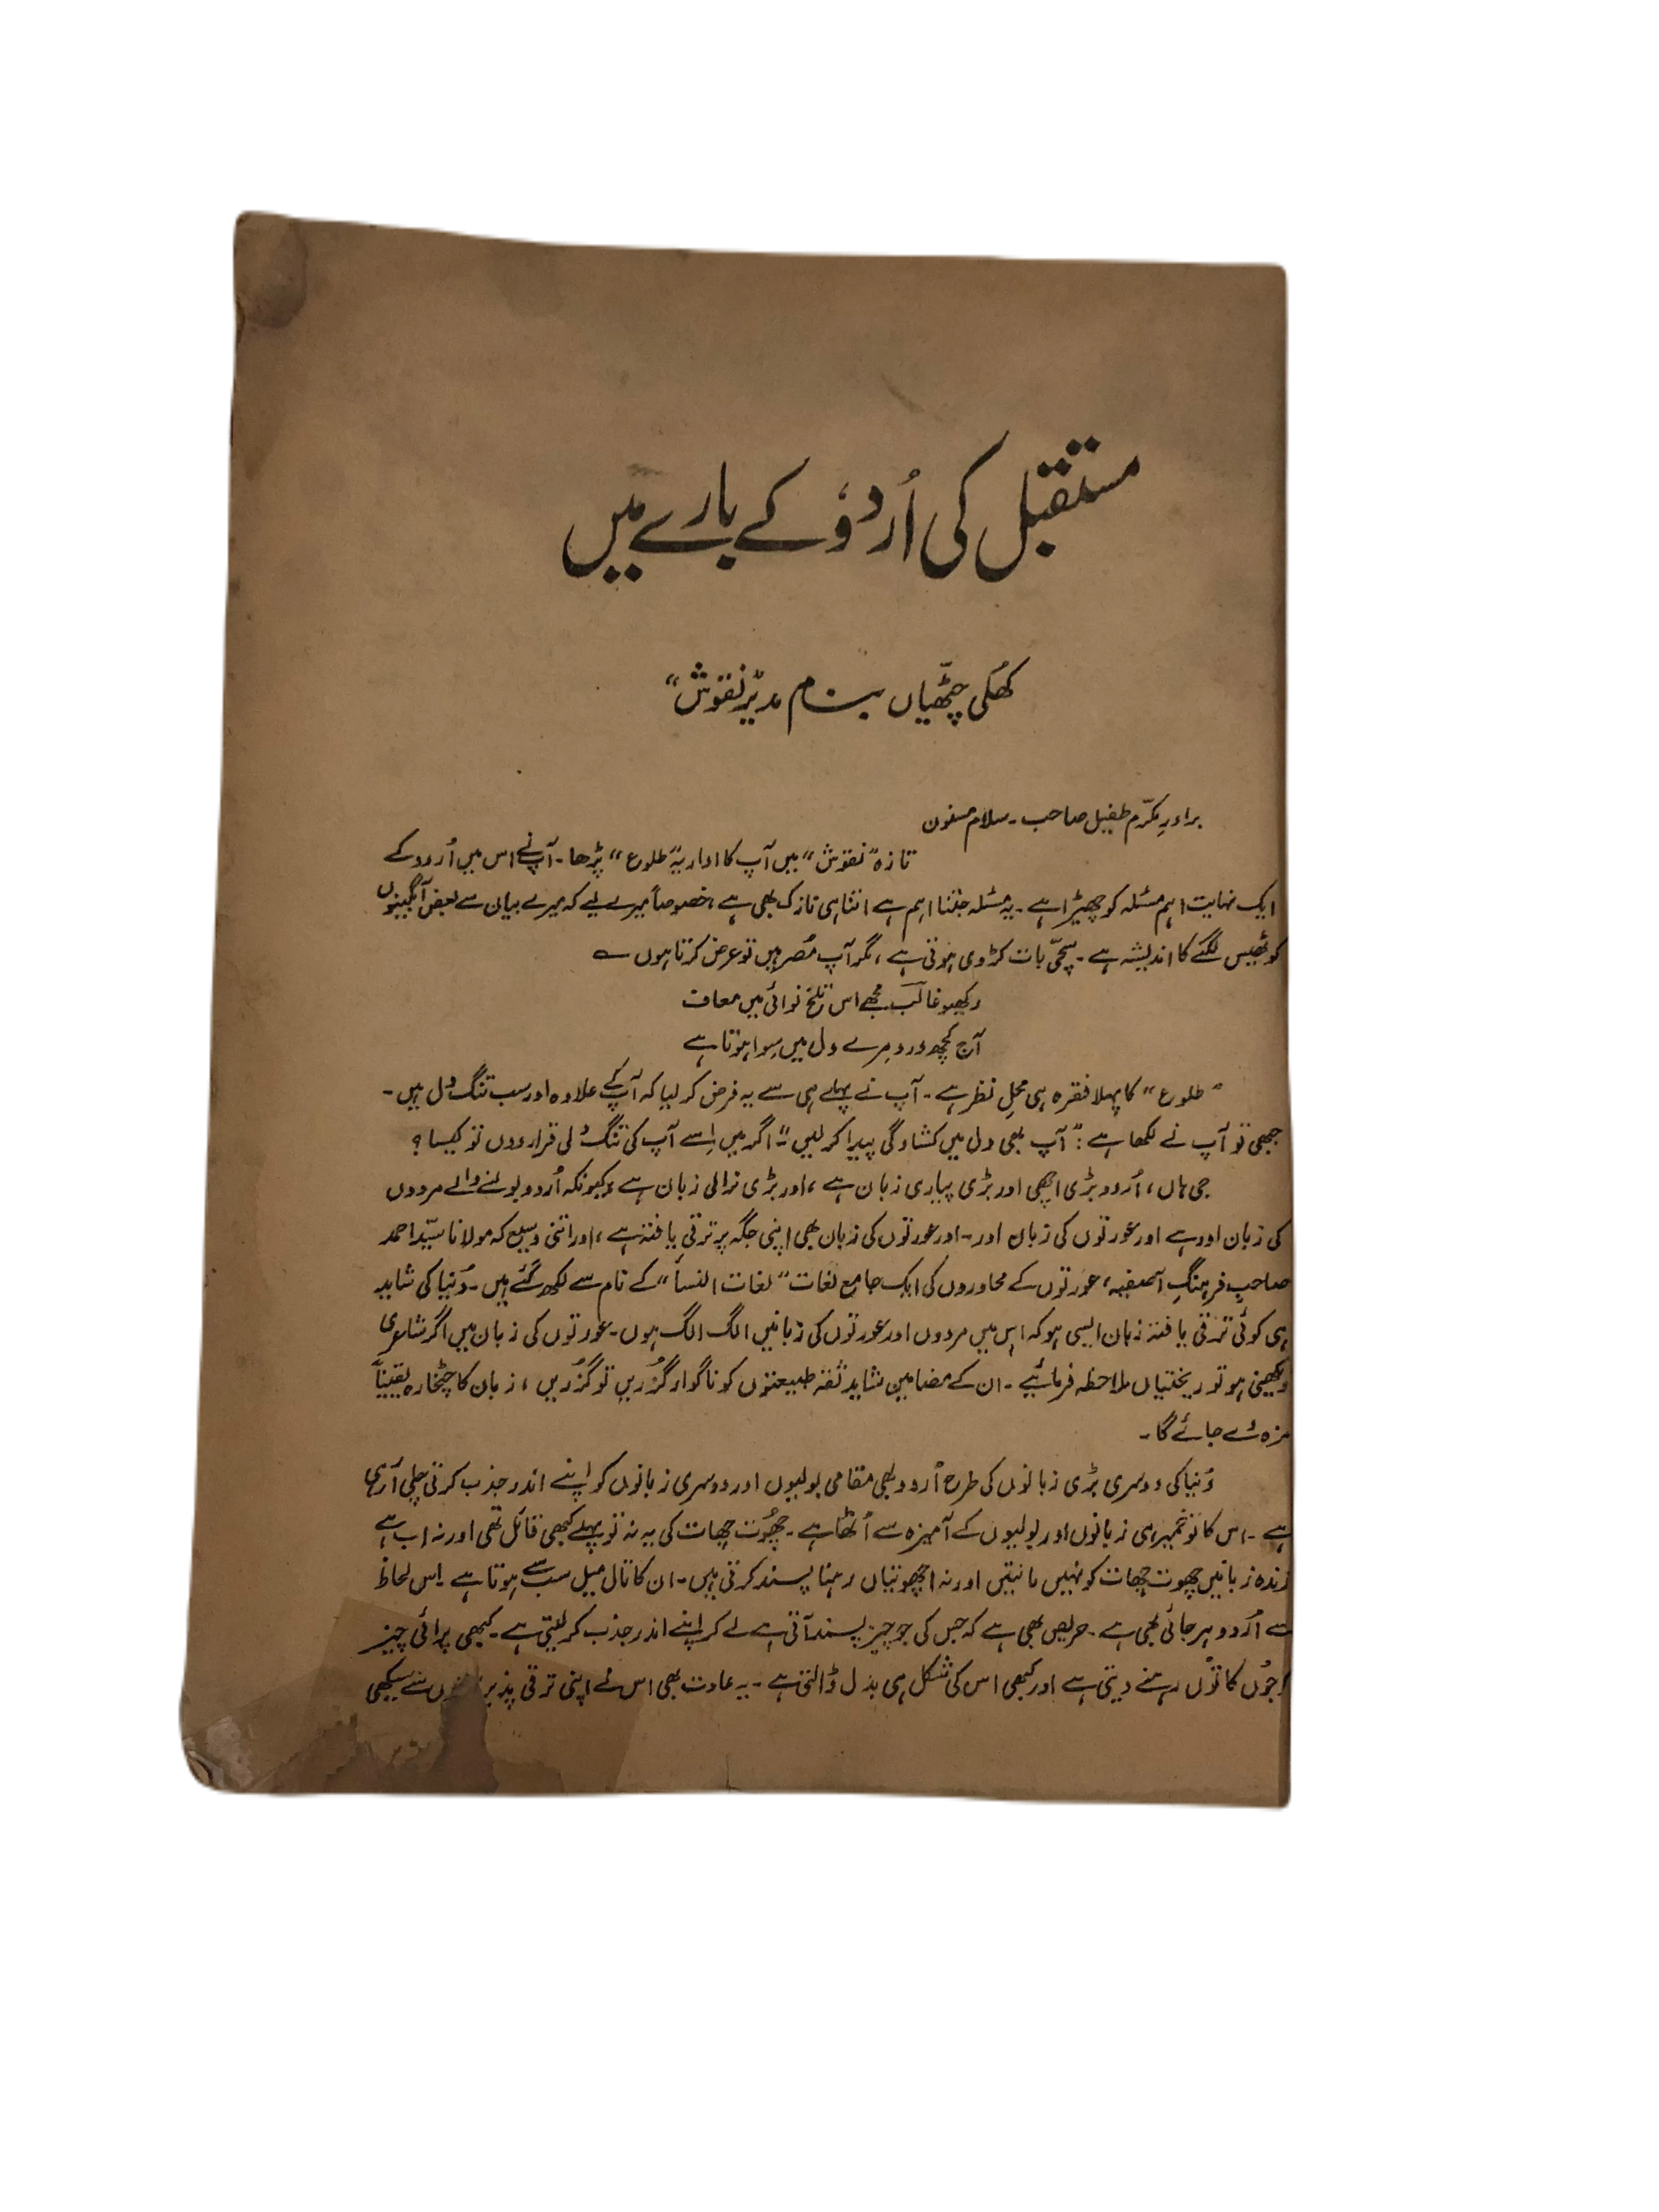 مستقبل کی اُردوٗ کے بارے میں
کھُلی چٹھّیاں بنام مدیرِ "نقوش"
برادرِ مکرّم طفیل صاحب ۔ سلام مسنون
تازہ "نقوش" میں آپ کا اداریہ "طلوع" پڑھا ۔ آپ نے اس میں اُردو کے
ایک نہایت اہم مسئلہ کو چھیڑا ہے ۔ یہ مسئلہ جتنا اہم ہے اتنا ہی نازک بھی ہے ، خصوصاً میرے لیے کہ میرے بیان سے بعض آبگینوں
کو ٹھیس لگنے کا اندیشہ ہے ۔ سچّی بات کڑوی ہوتی ہے ، مگر آپ مُصر ہیں تو عرض کرتا ہوں ؎
رکھیو غالبؔ مجھے اس تلخ نوائی میں معاف
آج کچھ درد مرے دل میں سِوا ہوتا ہے
"طلوع" کا پہلا فقرہ ہی محلِ نظر ہے ۔ آپ نے پہلے ہی سے یہ فرض کر لیا کہ آپ کے علاوہ اور سب تنگ دل ہیں ۔
جبھی تو آپ نے لکھا ہے : "آپ بھی دل میں کشادگی پیدا کر لیں" ۔ اگر میں اِسے آپ کی تنگ دلی قرار دوں تو کیسا ؟
جی ہاں ، اُردو بڑی اچھی اور بڑی پیاری زبان ہے ، اور بڑی نرالی زبان ہے ، کیونکہ اُردو بولنے والے مردوں
کی زبان اور ہے اور عورتوں کی زبان اور ۔ اور عورتوں کی زبان بھی اپنی جگہ پر ترقی یافتہ ہے ، اور اتنی وسیع کہ مولانا سیّد احمد
صاحبِ فرہنگِ آصفیہ ، عورتوں کے محاوروں کی ایک جامع لغات "لغات النسأ" کے نام سے لکھ گئے ہیں ۔ دُنیا کی شاید
ہی کوئی ترقی یافتہ زبان ایسی ہو کہ اس میں مردوں اور عورتوں کی زبانیں الگ الگ ہوں ۔ عورتوں کی زبان میں اگر شاعری
دیکھنی ہو تو ریختیاں ملاحظہ فرمائیے ۔ ان کے مضامین شاید ثقہ طبیعتوں کو ناگوار گزریں تو گزریں ، زبان کا چٹخارہ یقیناً
مزہ دے جائے گا ۔
دُنیا کی دوسری بڑی زبانوں کی طرح اُردو بھی مقامی بولیوں اور دوسری زبانوں کو اپنے اندر جذب کرتی چلی آ رہی
ہے ۔ اس کا تو خمیر ہی زبانوں اور بولیوں کے آمیزہ سے اُٹھا ہے ۔ چھُوت چھات کی یہ نہ تو پہلے کبھی قائل تھی اور نہ اب ہے
زندہ زبانیں چھوت چھات کو نہیں مانتیں اور نہ اچھوتیاں رہنا پسند کرتی ہیں ۔ ان کا تال میل سب سے ہوتا ہے ۔ اس لحاظ
سے اُردو ہرجائی بھی ہے ۔ حریص بھی ہے کہ جس کی جو چیز پسند آتی ہے لے کر اپنے اندر جذب کر لیتی ہے ۔ کبھی پرائی چیز
جُوں کا تُوں رہنے دیتی ہے اور کبھی اس کی شکل ہی بدل ڈالتی ہے ۔ یہ عادت بھی اس نے اپنی ترقی پذیر سے سیکھی